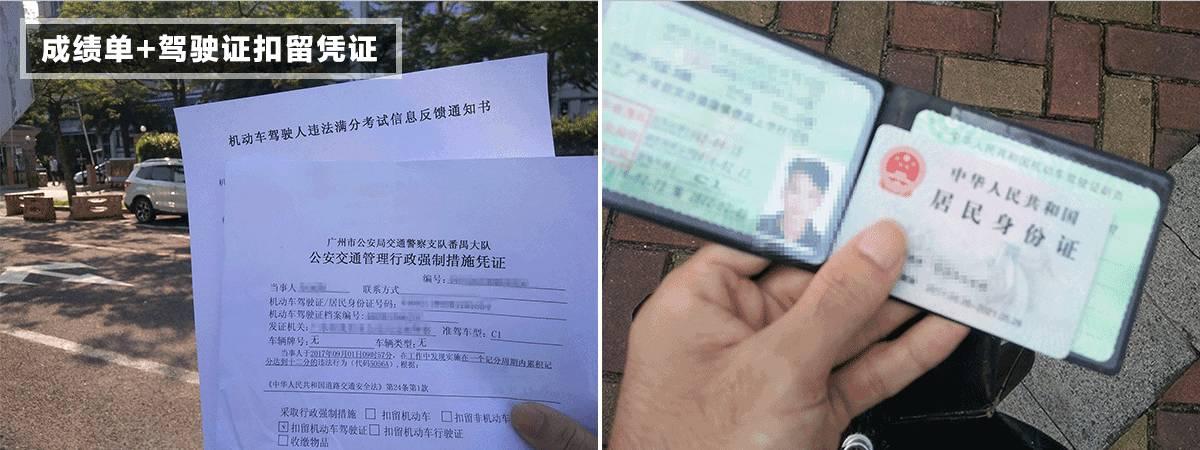 成绩单+驾驶证扣留凭证
机动车驾驶人违法满分考试信息反馈通知书
机
广州市公安局交通警察支队番禺大队
公安交通管理行政强制措施凭证
编号:
当事人 联系方式
机动车驾驶证/居民身份证号码:
机动车驾驶证档案编号:
发证机关: 准驾车型: C1
车辆牌号: 无 车辆类型: 无
当事人于2017年09月01日09时57分, 在工作中发现实施在一个记分周期内累积记
分达到十二分的违法行为(代码5056A), 根据:
《中华人民共和国道路交通安全法》第24条第1款
采取行政强制措施 □ 扣留机动车 □ 扣留非机动车
☑扣留机动车驾驶证 □ 扣留机动车行驶证
□收缴物品
C1
中华人民共和国机动车驾驶证副页
中华人民共和国
居民身份证